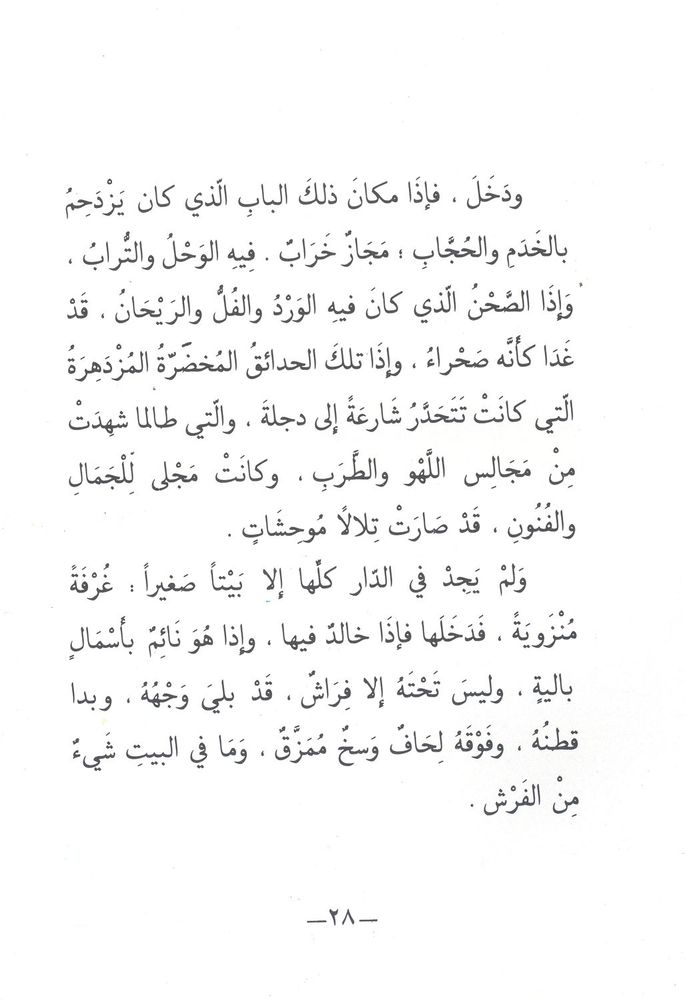 ودَخَلَ ، فإذَا مكانَ ذلكَ البابِ الّذي كان يَزْدَحِمُ
بالخَدَمِ والحُجَّابِ ؛ مَجَازٌ خَرَابٌ . فِيهِ الوَحْلُ والتُّرابُ ،
وَإِذَا الصَّحْنُ الّذي كانَ فيه الوَرْدُ والفُلُّ والرَيْحَانُ ، قَدْ
غَدَا كأَنَّه صَحْراءُ ، وإِذَا تلكَ الحدائقُ المُخضَرّةُ المُزْدَهِرَةُ
الّتي كانَتْ تَتَحَدَّرُ شَارعَةً إلى دجلةَ ، والّتي طالما شهِدَتْ
مِنْ مَجَالِسِ اللَّهْوِ والطَّرَبِ ، وكانَتْ مَجْلى لِلْجَمَالِ
والفُنُونِ ، قَدْ صَارَتْ تِلالًا مُوحِشَاتٍ .
وَلمْ يَجِدْ في الدّار كلِّها إلا بَيْتاً صَغيراً : غُرْفَةً
مُنْزَويَةً ، فَدَخَلَها فإذَا خالدٌ فيها ، وإذا هُوَ نَائِمٌ بأَسْمَالٍ
باليةٍ ، وليسَ تَحْتَهُ إلا فِرَاشٌ ، قَدْ بليَ وَجْهُهُ ، وبدا
قطنُهُ ، وفَوْقَهُ لِحَافٌ وَسخٌ مُمَزَّقٌ ، وَمَا في البيتِ شَيءٌ
مِنْ الفَرْش .
—٢٨—